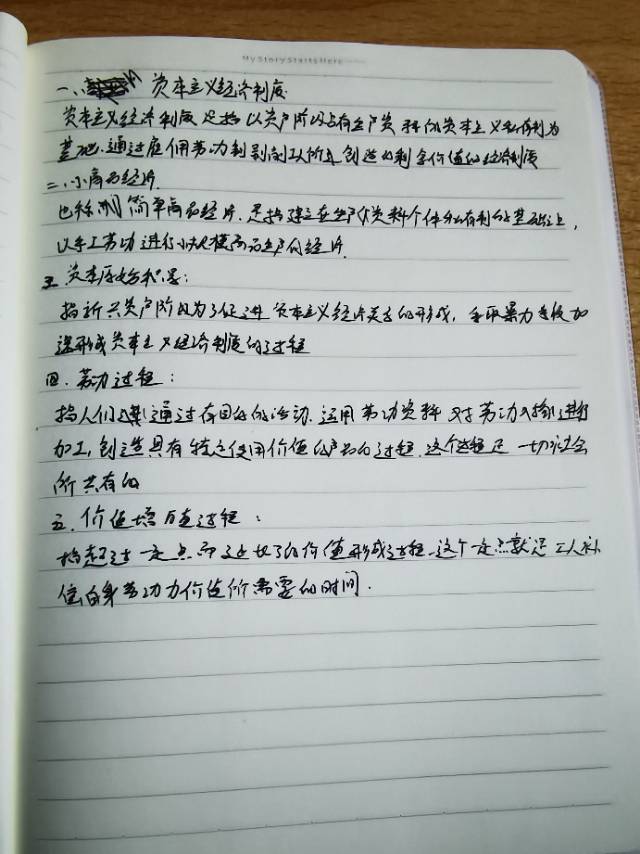 MyStoryStartsHere
一、资本主义经济制度
资本主义经济制度是指以资产阶级占有生产资料的资本主义私有制为
基础、通过雇佣劳动剥削工人所创造的剩余价值的经济制度
二、小商品经济
也称简单商品经济、是指建立在生产资料个体私有制的基础上,
以手工劳动进行小规模商品生产的经济
三、资本原始积累:
指新兴资产阶级为了促进资本主义经济关系的形成,采取暴力手段加
速形成资本主义经济制度的过程
四、劳动过程:
指人们通过有目的的活动、运用劳动资料对劳动对象进行
加工,创造具有特定使用价值的产品的过程、这个过程是一切社会
所共有的
五、价值增值过程:
指超过一定点而延长了的价值形成过程、这个一定点就是工人补
偿自身劳动力价值所需要的时间.